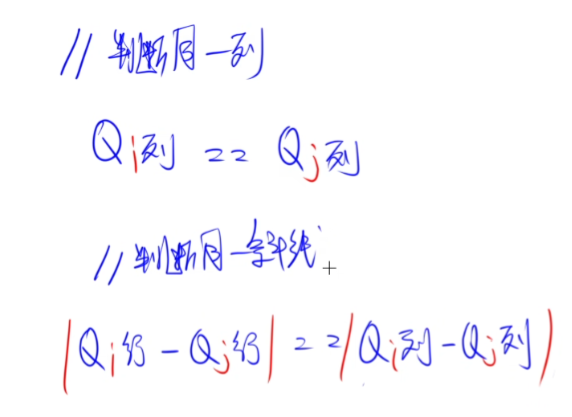 // 判断同一列
Qi列 == Qj列
// 判断同一条斜线
|Qi行 - Qj行| == |Qi列 - Qj列|